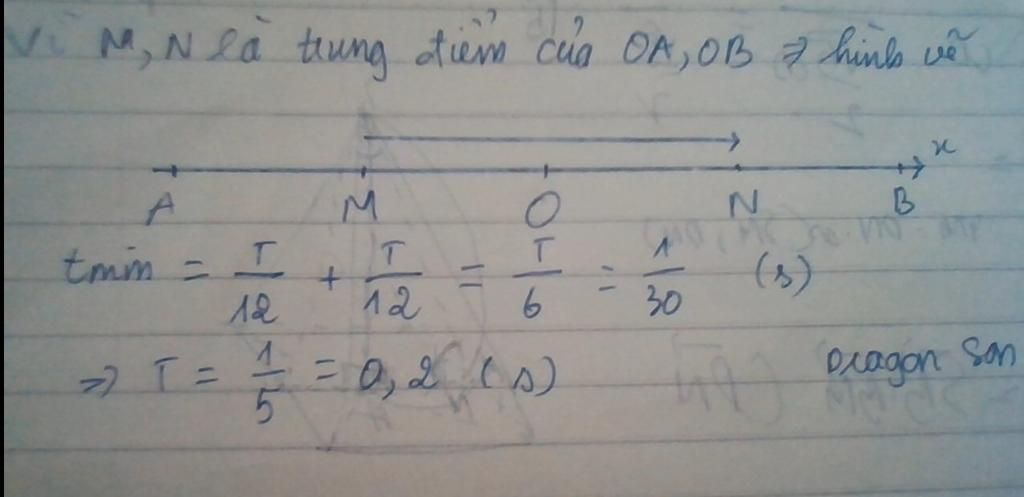 Vì M, N là trung điểm của OA, OB => hình vẽ
x
A M O N B
tmin = T/12 + T/12 = T/6 = 1/30 (s)
=> T = 1/5 = 0,2 (s)
Dragon Son